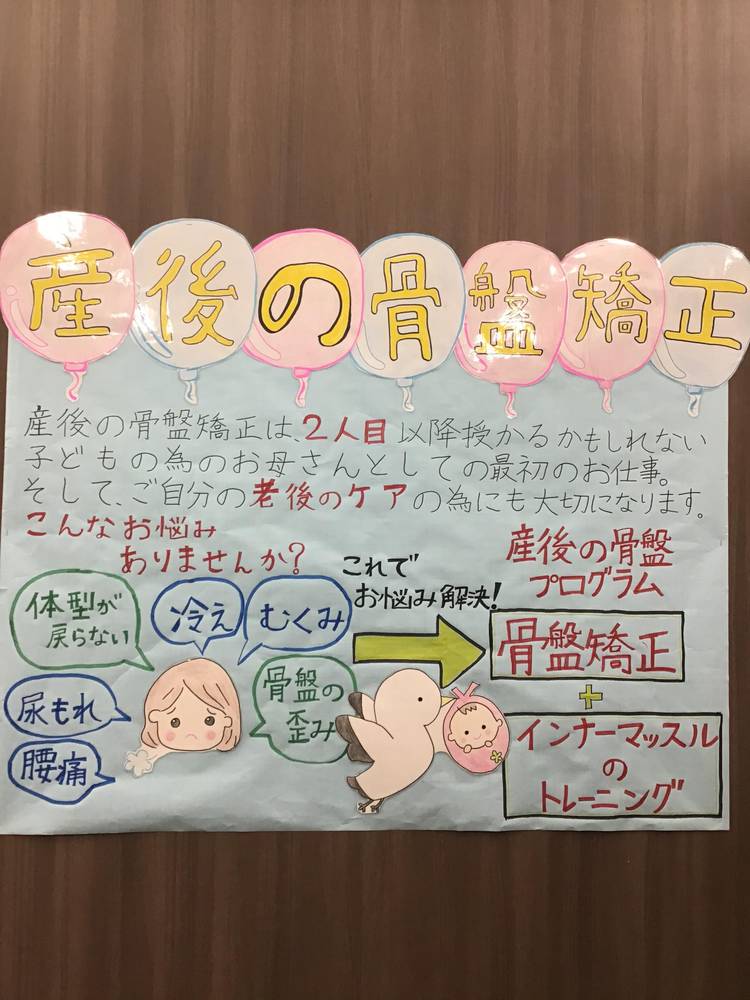 産後の骨盤矯正
産後の骨盤矯正は、2人目以降授かるかもしれない
子どもの為のお母さんとしての最初のお仕事。
そして、ご自分の老後のケアの為にも大切になります。
こんなお悩み
ありませんか?
体型が
戻らない
冷え
むくみ
尿もれ
腰痛
骨盤の
歪み
これで
お悩み解決!
産後の骨盤
プログラム
骨盤矯正
+
インナーマッスル
の
トレーニング